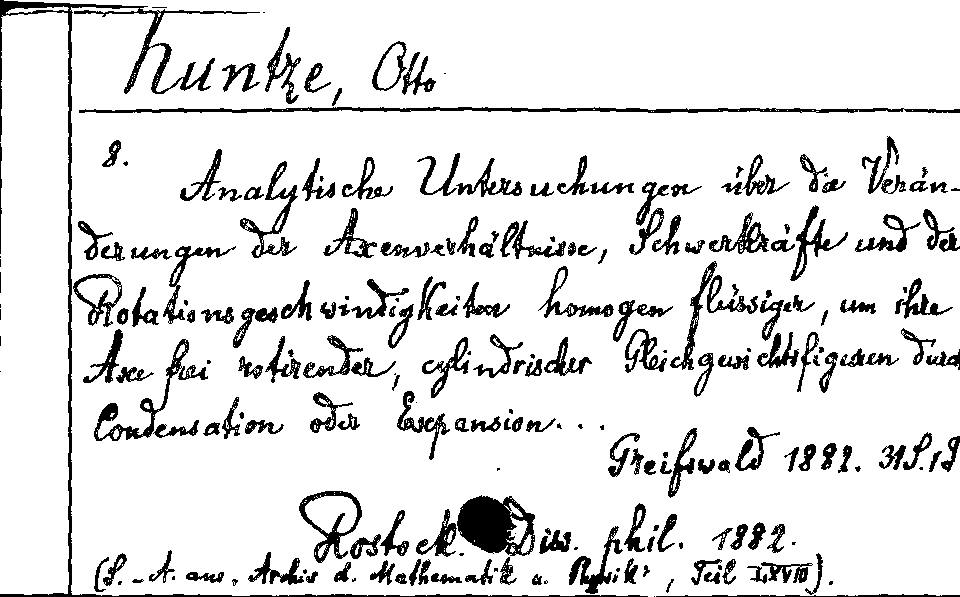 Kuntze, Otto
8.
Analytische Untersuchungen über die Verän-
derungen der Axenverhältnisse, Schwerkräfte und der
Rotationsgeschwindigkeiten homogen flüssiger, um ihre
Axe frei rotirender, cylindrischer Gleichgewichtsfiguren durch
Condensation oder Expansion...
Greifswald 1882. 31 S.
Rostock. Diss. phil. 1882.
(S.-A. aus. Archiv d. Mathematik u. Physik, Teil LXVIII).